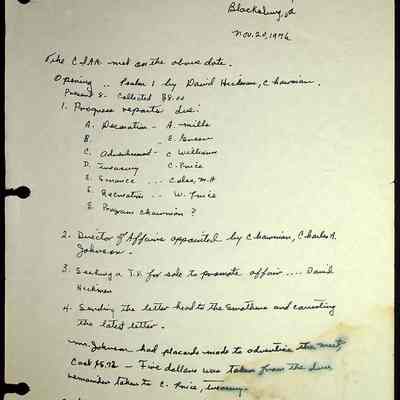 Blacksburg, Va
Nov. 20, 1976
The CIAA met on the above date.
Opening .. Psalm 1 by David Hickman, Chairman.
Present 8 - Collected $8.00
1. Progress reports due:
A. Decoration - A. Mills
B. " - E. Green
C. Advertisement - C Williams
D. Treasury C. Price
E. Finance ... Coles, M.H
F. Recreation .. W. Price
E. Program chairman ?
2. Director of Affairs appointed by Chairman, Charles A.
Johnson.
3. Seeking a T.V. for sale to promote affair .... David
Hickman
4. Sending the letter head to the and correcting
the latest letter.
Mr. Johnson had placards made to advertise the meet,
Cost - Five dollars was taken from the dues
remainder taken to C. Price, treasury.